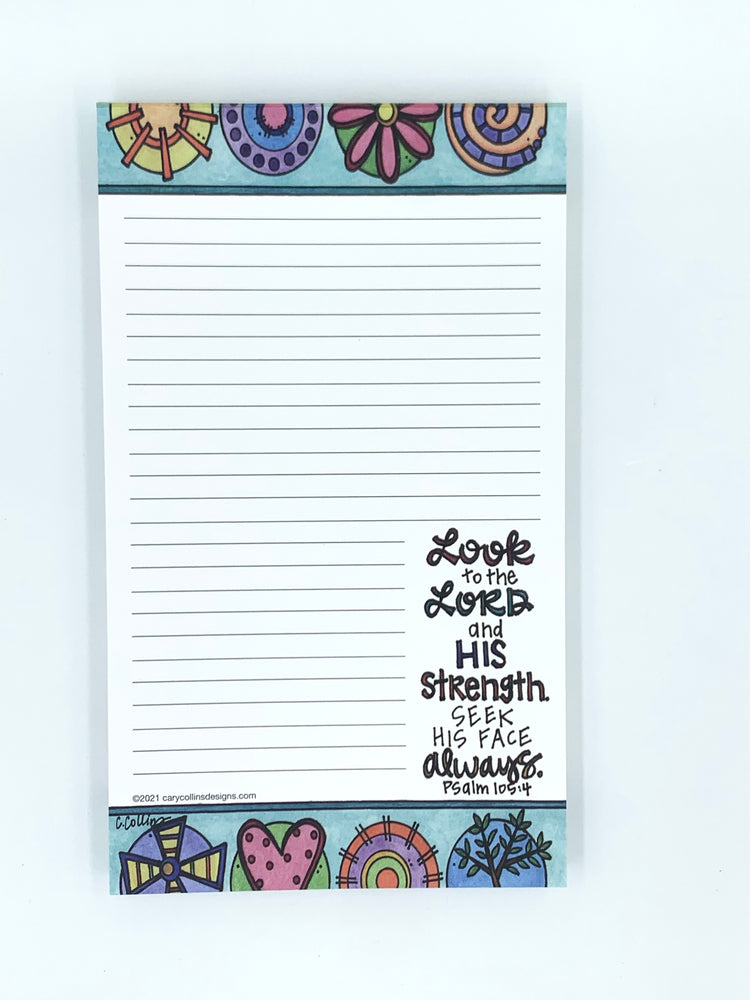 Look
to the
LORD
and
HIS
Strength.
SEEK
HIS FACE
always.
Psalm 105:4
©2021 carycollinsdesigns.com
C.Collins